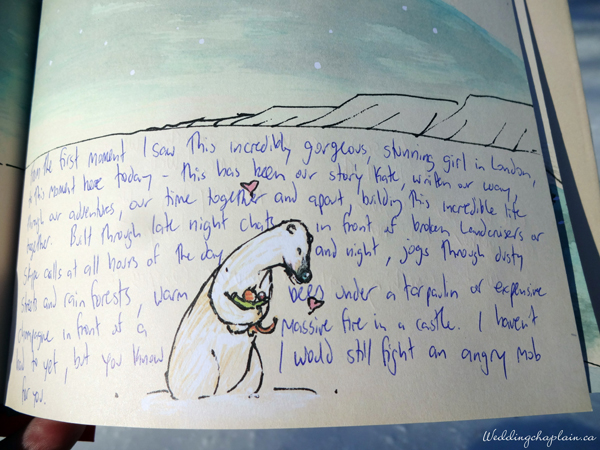 From the first moment I saw this incredibly gorgeous, stunning girl in London,
to this moment here today - this has been our story Kate, written our way,
through our adventures, our time together and apart, building this incredible life
together. Built through late night chats in front of broken Landcruisers or
skype calls at all hours of the day and night, jogs through dusty
streets and rain forests, warm beers under a tarpaulin or expensive
champagne in front of a massive fire in a castle. I haven't
had to yet, but you know I would still fight an angry mob
for you.
Weddingchaplain.ca